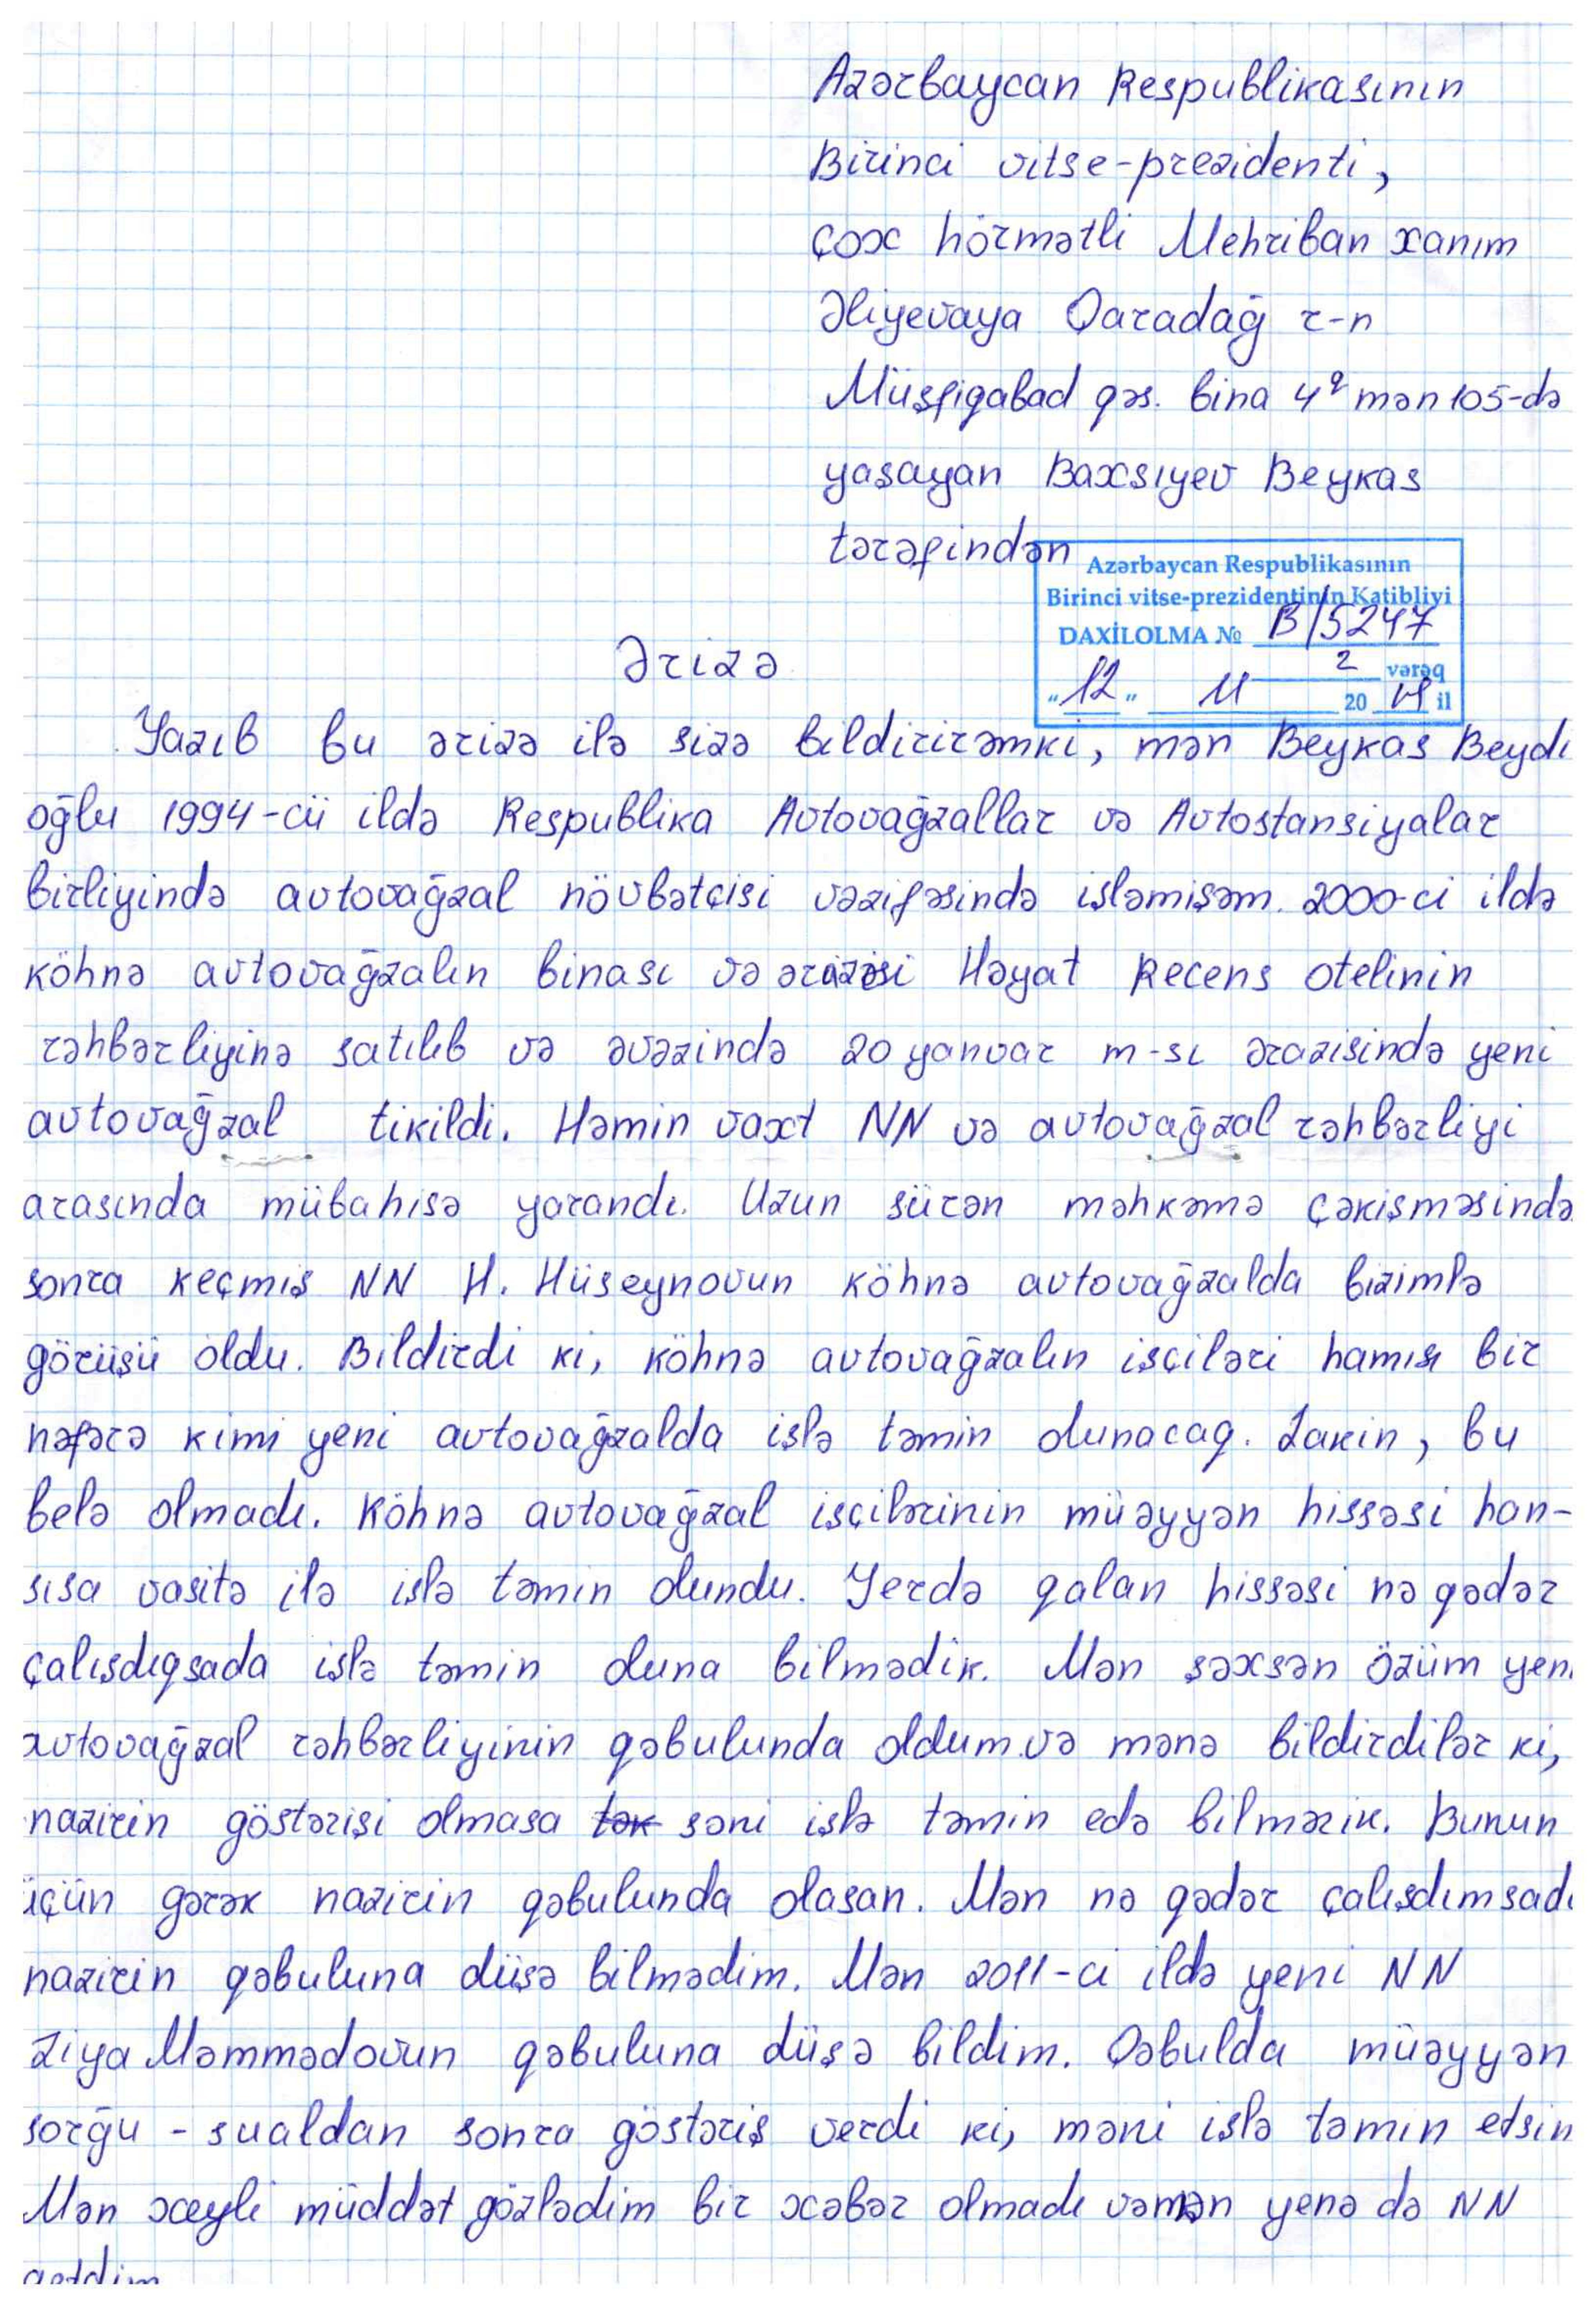 Azərbaycan Respublikasının
Birinci vitse-prezidenti,
çox hörmətli Mehriban xanım
Əliyevaya Qaradağ r-n
Müşfiqabad qəs. bina 4ª mən 105-də
yaşayan Baxsıyev Beykas
tərəfindən
Azərbaycan Respublikasının
Birinci vitse-prezidentinin Katibliyi
DAXİLOLMA № B/5247
2 vərəq
"12" 11 2019 il
Ərizə
Yazıb bu ərizə ilə sizə bildirirəmki, mən Beykas Beydi
oğlu 1994-cü ildə Respublika Avtovağzallar və Avtostansiyalar
birliyində avtovağzal növbətçisi vəzifəsində işləmişəm. 2000-ci ildə
köhnə avtovağzalın binası və ərazisi Həyat Recens otelinin
rəhbərliyinə satılıb və əvəzində 20 yanvar m-sı ərazisində yeni
avtovağzal tikildi. Həmin vaxt NN və avtovağzal rəhbərliyi
arasında mübahisə yarandı. Uzun sürən məhkəmə çəkişməsində
sonra keçmiş NN H. Hüseynovun köhnə avtovağzalda bizimlə
görüşü oldu. Bildirdi ki, köhnə avtovağzalın işçiləri hamısı bir
nəfərə kimi yeni avtovağzalda işlə təmin olunacaq. Lakin, bu
belə olmadı. Köhnə avtovağzal işçilərinin müəyyən hissəsi han-
sısa vasitə ilə işlə təmin olundu. Yerdə qalan hissəsi nə qədər
çalışdıqsada işlə təmin oluna bilmədik. Mən şəxsən özüm yeni
avtovağzal rəhbərliyinin qəbulunda oldum və mənə bildirdilər ki,
nazirin göstərişi olmasa tək səni işlə təmin edə bilmərik. Bunun
üçün gərək nazirin qəbulunda olasan. Mən nə qədər çalışdımsada
nazirin qəbuluna düşə bilmədim. Mən 2011-ci ildə yeni NN
Ziya Məmmədovun qəbuluna düşə bildim. Qəbulda müəyyən
sorğu - sualdan sonra göstəriş verdi ki, məni işlə təmin etsin
Mən xeyli müddət gözlədim bir xəbər olmadı vəmən yenə də NN
getdim